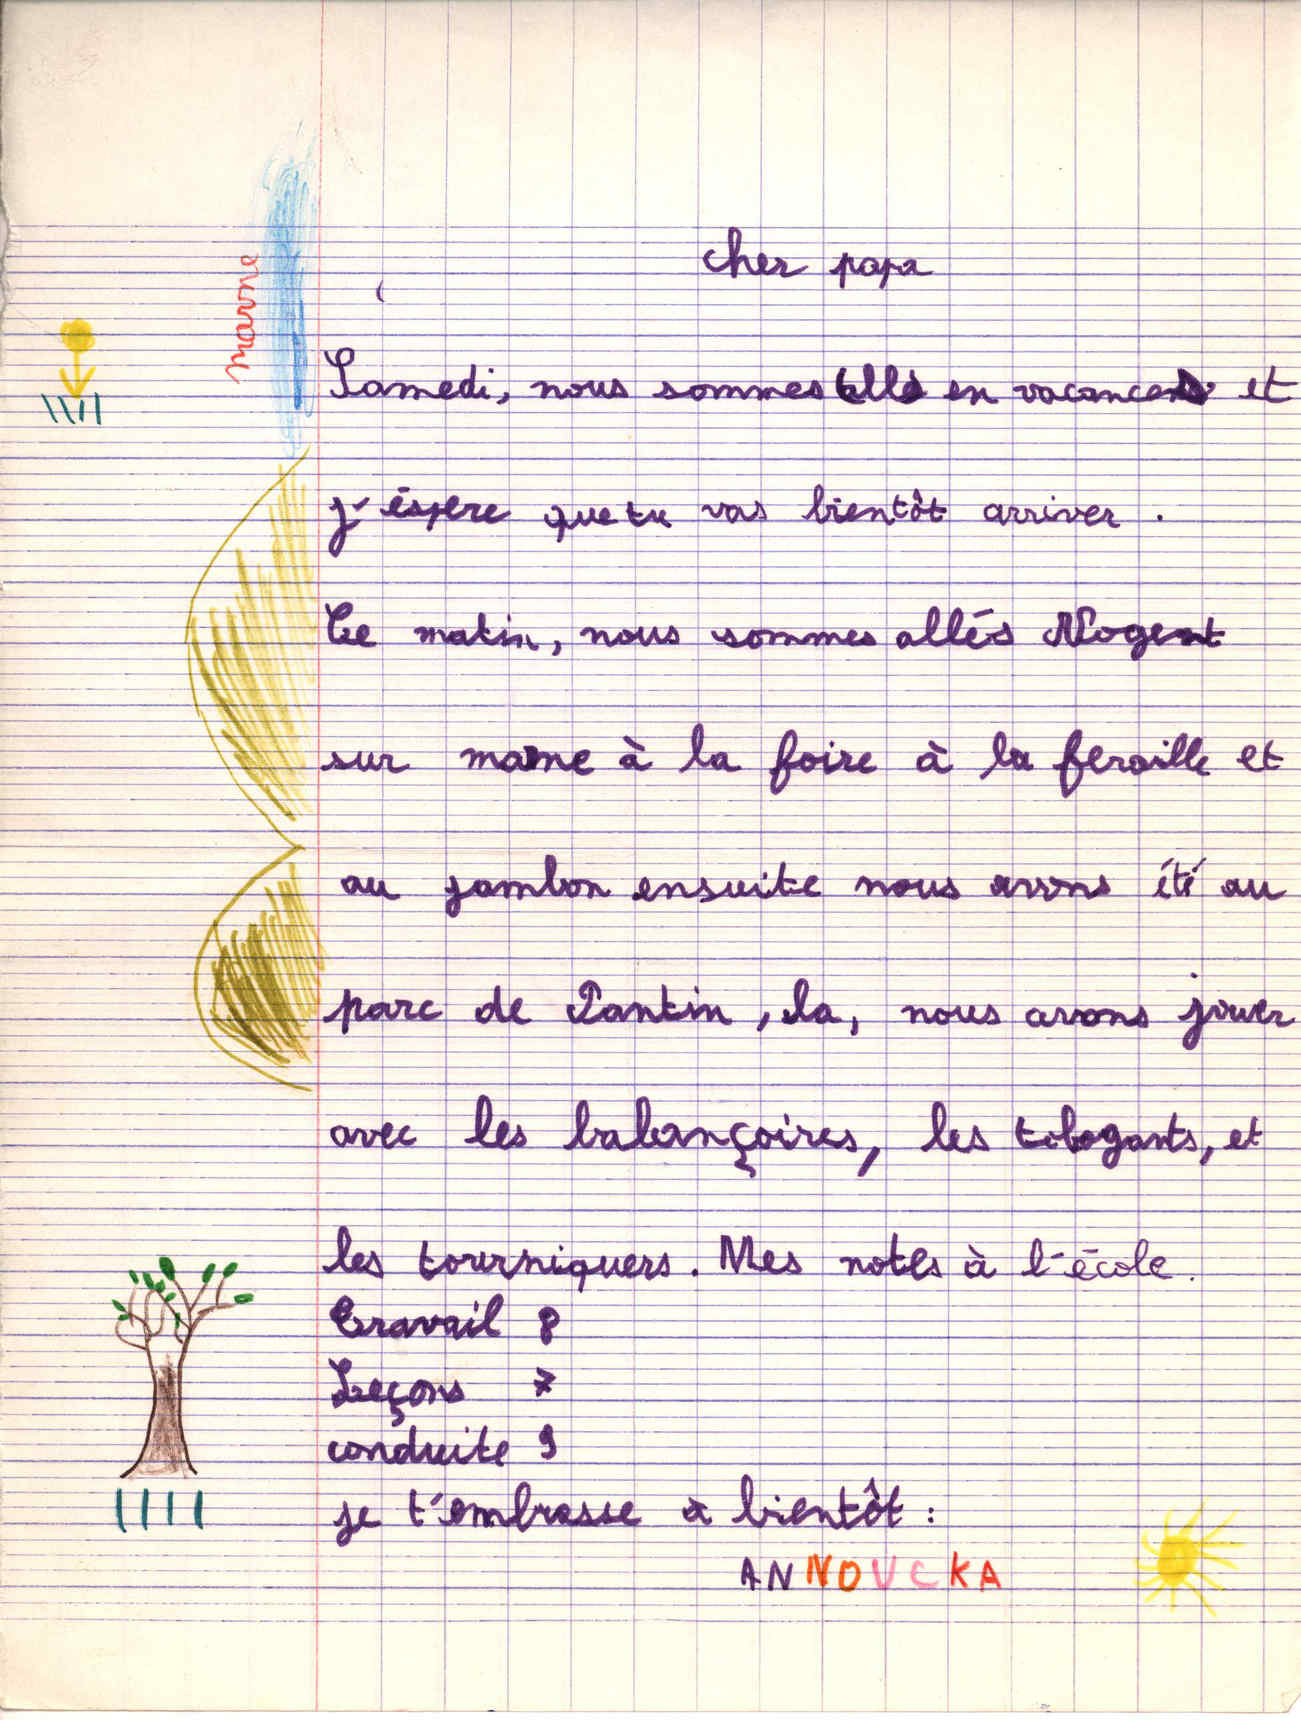 marne
cher papa
Samedi, nous sommes allés en vacances et
j'éspere que tu vas bientôt arriver.
Ce matin, nous sommes allés Nogent
sur marne à la foire à la feraille et
au jambon ensuite nous avons été au
parc de Pantin, la, nous avons jouer
avec les balançoires, les tobogants, et
les tourniquers. Mes notes à l'école.
travail 8
Leçons 7
conduite 9
je t'embrasse à bientôt :
ANNOUCKA